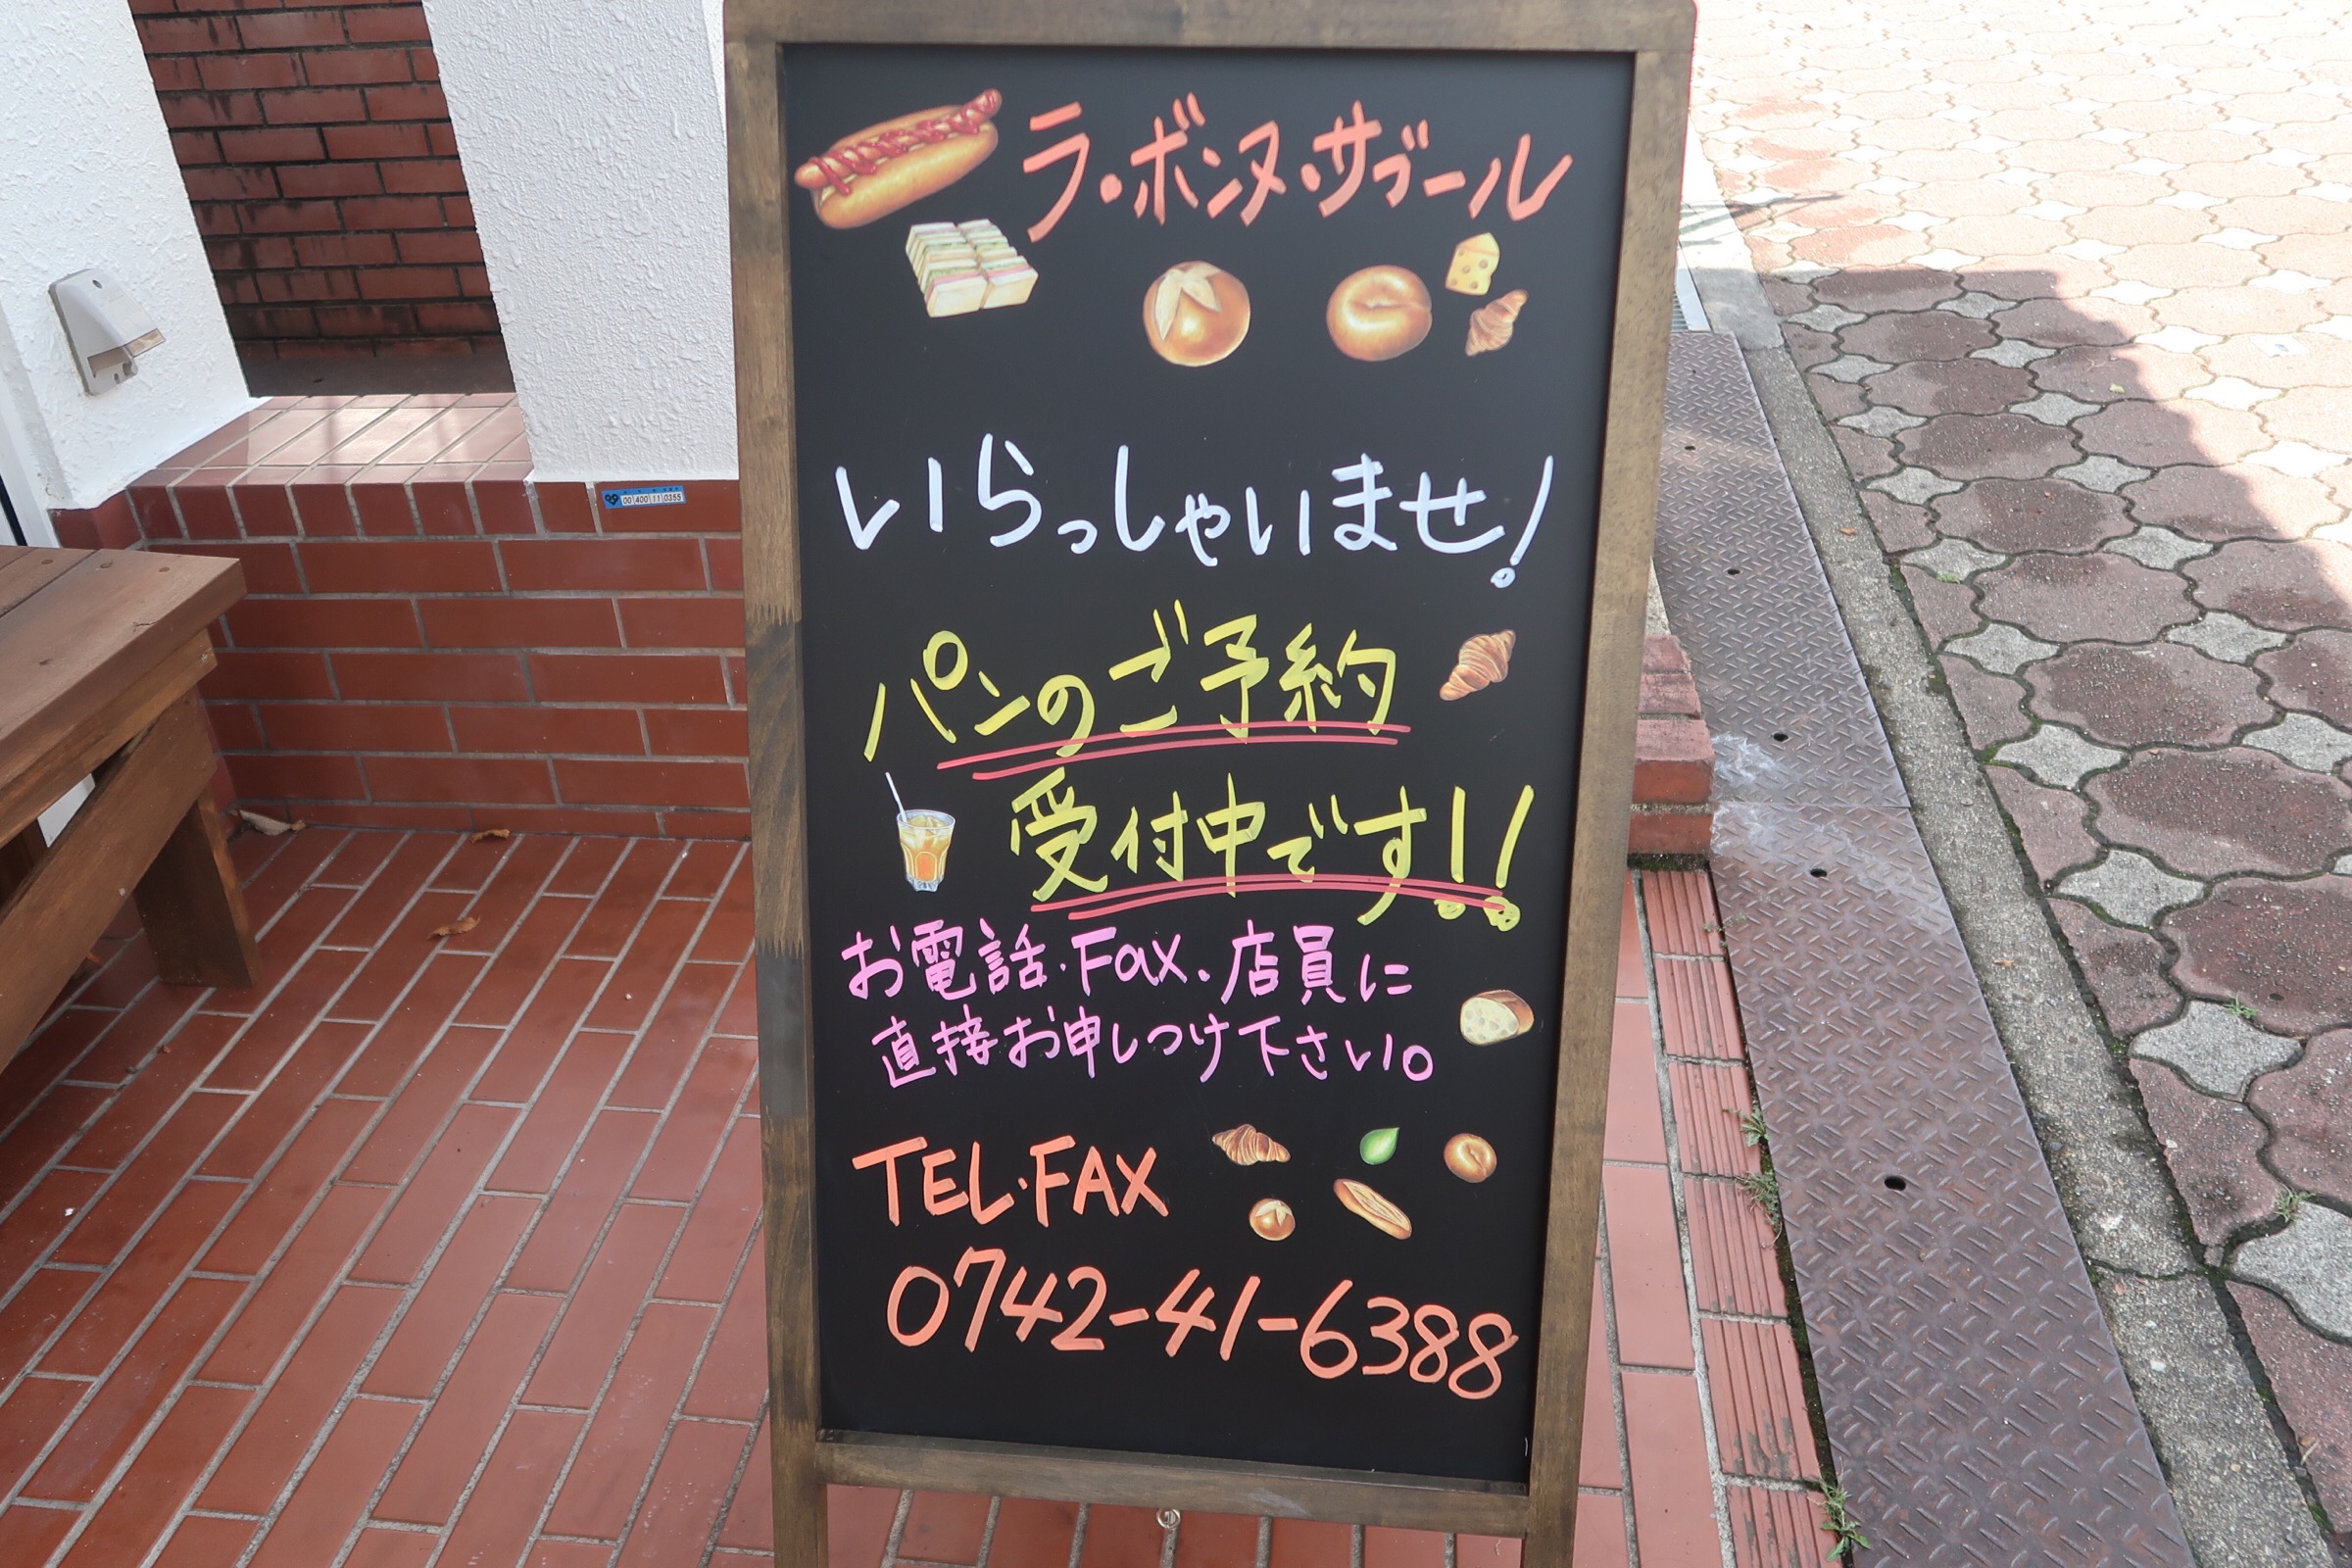 ラ・ボンヌ・サブール
いらっしゃいませ!
パンのご予約
受付中です!!
お電話・Fax・店員に
直接お申しつけ下さい。
TEL・FAX
0742-41-6388
00 400 11 0355